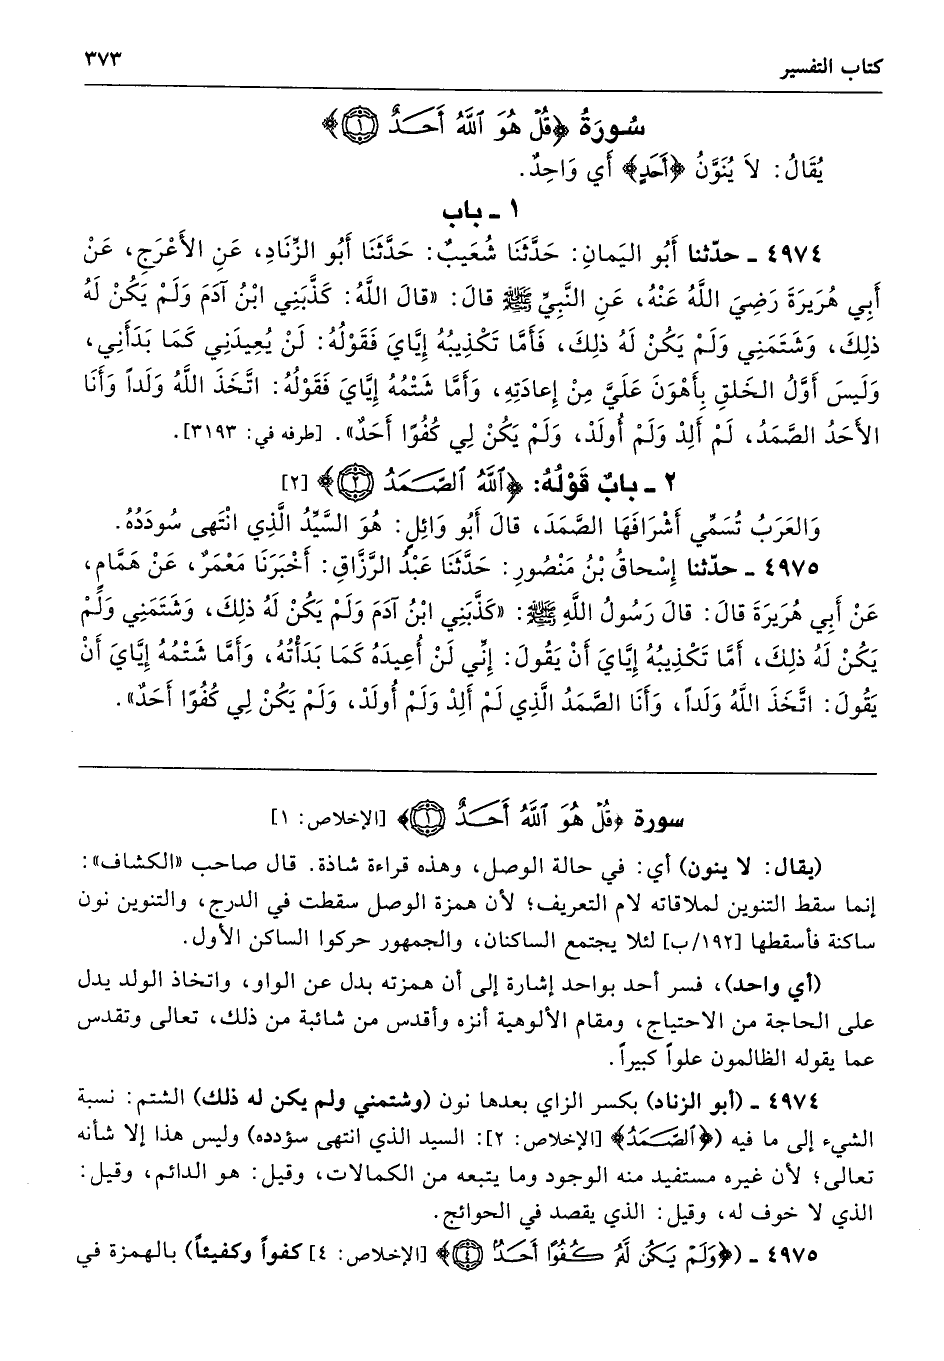 كتاب التفسير
٣٧٣
سُورَةُ ﴿قُلْ هُوَ ٱللَّهُ أَحَدٌ ١﴾
يُقَالُ: لاَ يُنَوَّنُ ﴿أَحَدٍ﴾ أَي وَاحِدٌ.
١ ـ باب
٤٩٧٤ ـ حدّثنا أَبُو اليَمانِ: حَدَّثَنَا شُعَيبٌ: حَدَّثَنَا أَبُو الزِّنَادِ، عَنِ الأَعْرَجِ، عَنْ
أَبِي هُرَيرَةَ رَضِيَ اللَّهُ عَنْهُ، عَنِ النَّبِيِّ ﷺ قالَ: «قالَ اللَّهُ: كَذَّبَنِي ابْنُ آدَمَ وَلَمْ يَكُنْ لَهُ
ذلِكَ، وَشَتَمَنِي وَلَمْ يَكُنْ لَهُ ذلِكَ، فَأَمَّا تَكْذِيبُهُ إِيَّايَ فَقَوْلُهُ: لَنْ يُعِيدَنِي كَمَا بَدَأَنِي،
وَلَيسَ أَوَّلُ الخَلقِ بِأَهْوَنَ عَلَيَّ مِنْ إِعادَتِهِ، وَأَمَّا شَتْمُهُ إِيَّايَ فَقَوْلُهُ: اتَّخَذَ اللَّهُ وَلَداً وَأَنَا
الأَحَدُ الصَّمَدُ، لَمْ أَلِدْ وَلَمْ أُولَدْ، وَلَمْ يَكُنْ لِي كُفُوًا أَحَدٌ». [طرفه في: ٣١٩٣].
٢ ـ بابٌ قَوْلُهُ: ﴿ٱللَّهُ ٱلصَّمَدُ ٢﴾ [٢]
وَالعَرَبُ تُسَمِّي أَشْرَافَهَا الصَّمَدَ، قالَ أَبُو وَائِلٍ: هُوَ السَّيِّدُ الَّذِي انْتَهى سُودَدُهُ.
٤٩٧٥ ـ حدّثنا إِسْحاقُ بْنُ مَنْصُورٍ: حَدَّثَنَا عَبْدُ الرَّزَّاقِ: أَخْبَرَنَا مَعْمَرٌ، عَنْ هَمَّامٍ،
عَنْ أَبِي هُرَيرَةَ قالَ: قالَ رَسُولُ اللَّهِ ﷺ: «كَذَّبَنِي ابْنُ آدَمَ وَلَمْ يَكُنْ لَهُ ذلِكَ، وَشَتَمَنِي وَلَمْ
يَكُنْ لَهُ ذلِكَ، أَمَّا تَكْذِيبُهُ إِيَّايَ أَنْ يَقُولَ: إِنِّي لَنْ أُعِيدَهُ كَمَا بَدَأْتُهُ، وَأَمَّا شَتْمُهُ إِيَّايَ أَنْ
يَقُولَ: اتَّخَذَ اللَّهُ وَلَداً، وَأَنَا الصَّمَدُ الَّذِي لَمْ أَلِدْ وَلَمْ أُولَدْ، وَلَمْ يَكُنْ لِي كُفُوًا أَحَدٌ».
سورة ﴿قُلْ هُوَ ٱللَّهُ أَحَدٌ ١﴾ [الإخلاص: ١]
(يقال: لا ينون) أي: في حالة الوصل، وهذه قراءة شاذة. قال صاحب «الكشاف»:
إنما سقط التنوين لملاقاته لام التعريف؛ لأن همزة الوصل سقطت في الدرج، والتنوين نون
ساكنة فأسقطها [١٩٢/ب] لئلا يجتمع الساكنان، والجمهور حركوا الساكن الأول.
(أي واحد)، فسر أحد بواحد إشارة إلى أن همزته بدل عن الواو، واتخاذ الولد يدل
على الحاجة من الاحتياج، ومقام الألوهية أنزه وأقدس من شائبة من ذلك، تعالى وتقدس
عما يقوله الظالمون علواً كبيراً.
٤٩٧٤ ـ (أبو الزناد) بكسر الزاي بعدها نون (وشتمني ولم يكن له ذلك) الشتم: نسبة
الشيء إلى ما فيه (﴿ٱلصَّمَدُ﴾ [الإخلاص: ٢]: السيد الذي انتهى سؤدده) وليس هذا إلا شأنه
تعالى؛ لأن غيره مستفيد منه الوجود وما يتبعه من الكمالات، وقيل: هو الدائم، وقيل:
الذي لا خوف له، وقيل: الذي يقصد في الحوائج.
٤٩٧٥ ـ (﴿وَلَمْ يَكُن لَّهُۥ كُفُوًا أَحَدٌۢ ٤﴾ [الإخلاص: ٤] كفواً وكفيئاً) بالهمزة في